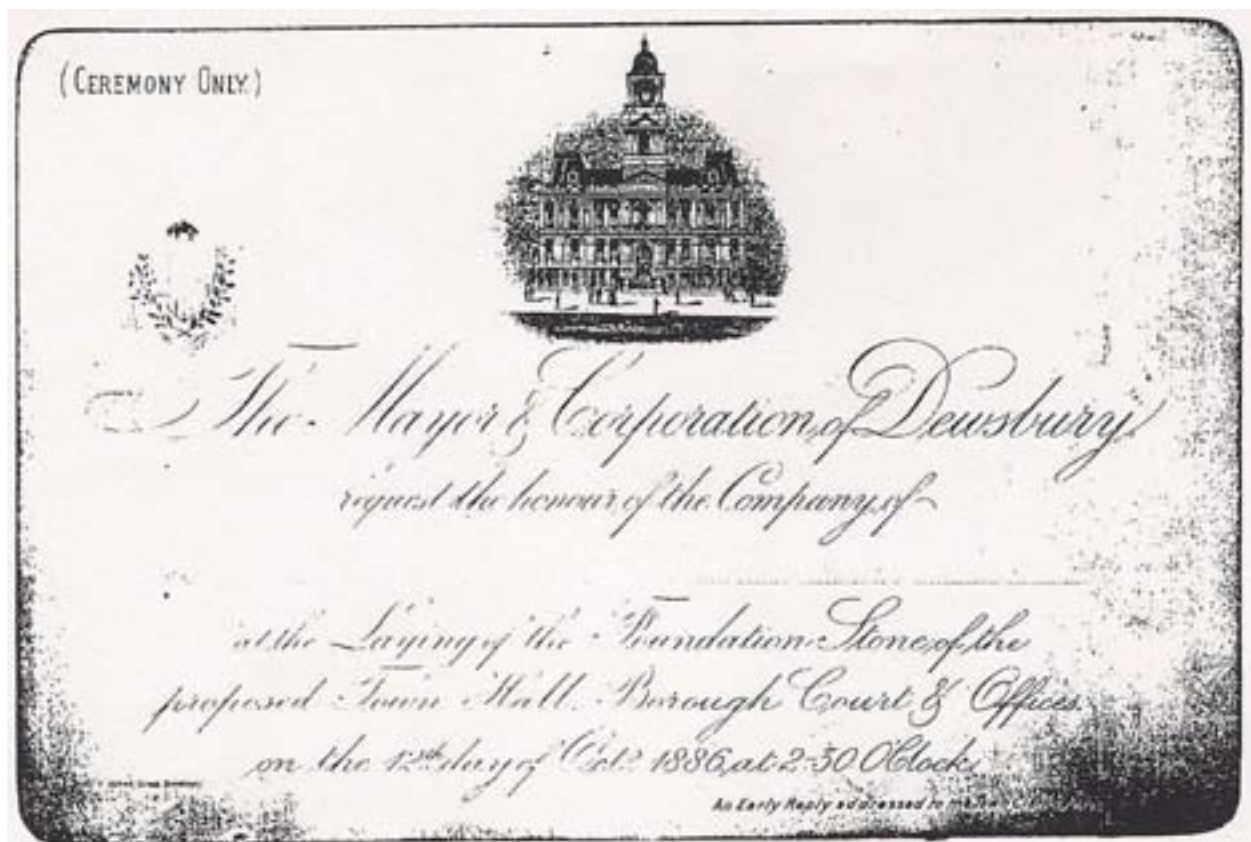 (CEREMONY ONLY.)
The Mayor & Corporation of Dewsbury
request the honour of the Company of
at the Laying of the Foundation Stone of the
proposed Town Hall. Borough Court & Offices
on the 12th day of Octr 1886, at 2-30 O'Clock.
An Early Reply addressed to